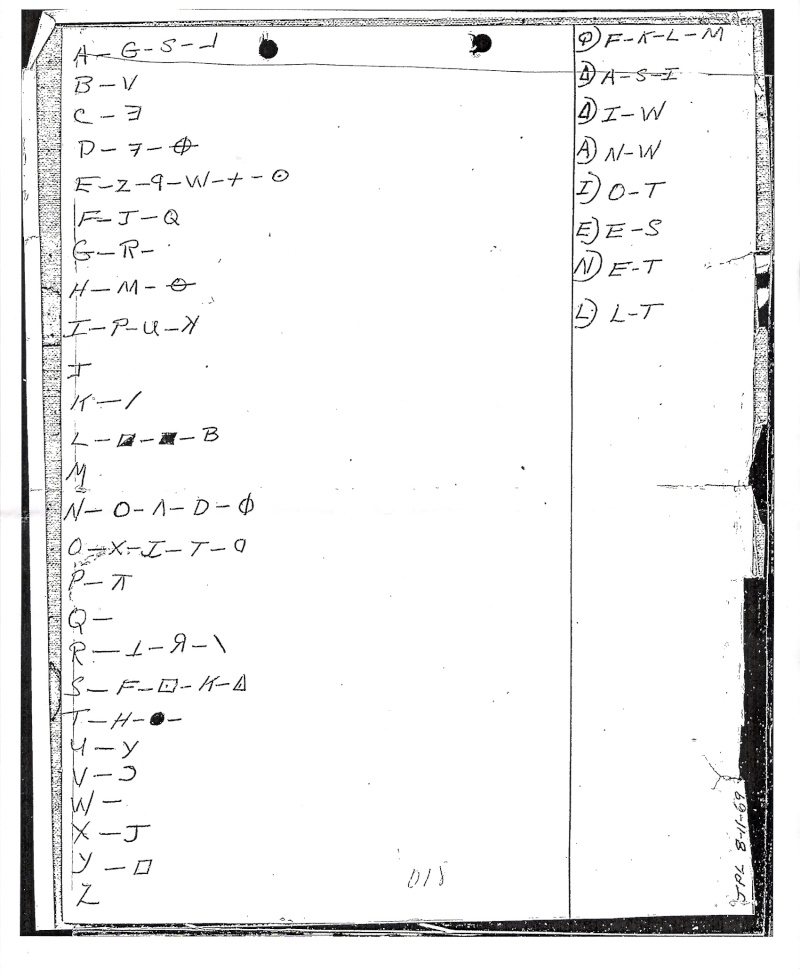 A - G - S - ⅃
B - V
C - Ǝ
D - ㇷ - ⏀
E - Z - 9 - W - + - ⊙
F - J - Q
G - R -
H - M - ⊖
I - P - U - ꓘ
J
K - /
L - ◪ - ■ - B
M
N - O - Λ - D - Φ
O - X - I - T - ᑫ
P - π
Q -
R - ⊥ - Я - \
S - F - ⊡ - K - ◬
T - H - ● -
U - Y
V - Ɔ
W -
X - J
Y - □
Z
018
Φ) F - K - L - M
◬) A - S - I
Δ) I - W
A) N - W
I) O - T
E) E - S
N) E - T
L) L - T
JPL 8-11-69